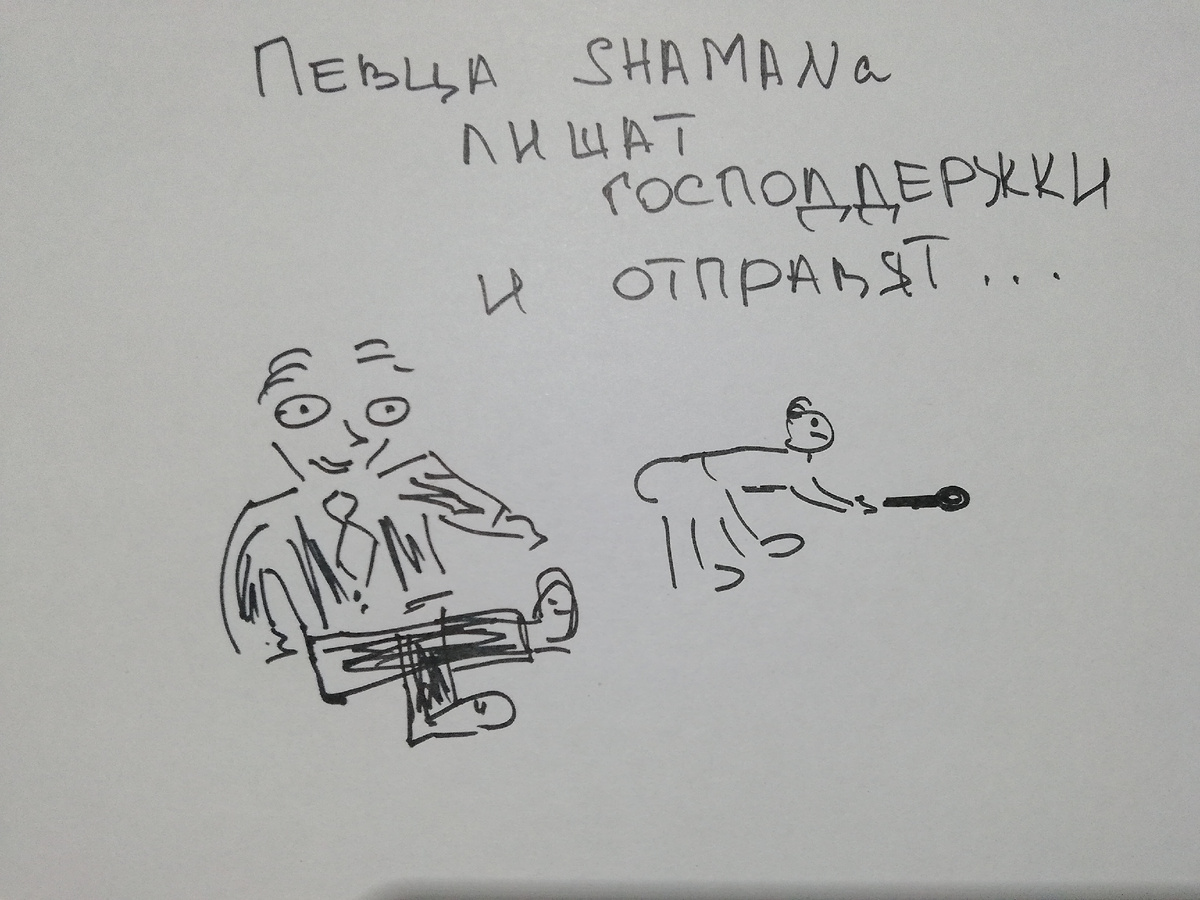 ПЕВЦА SHAMANа
ЛИШАТ
ГОСПОДДЕРЖКИ
И ОТПРАВЯТ...